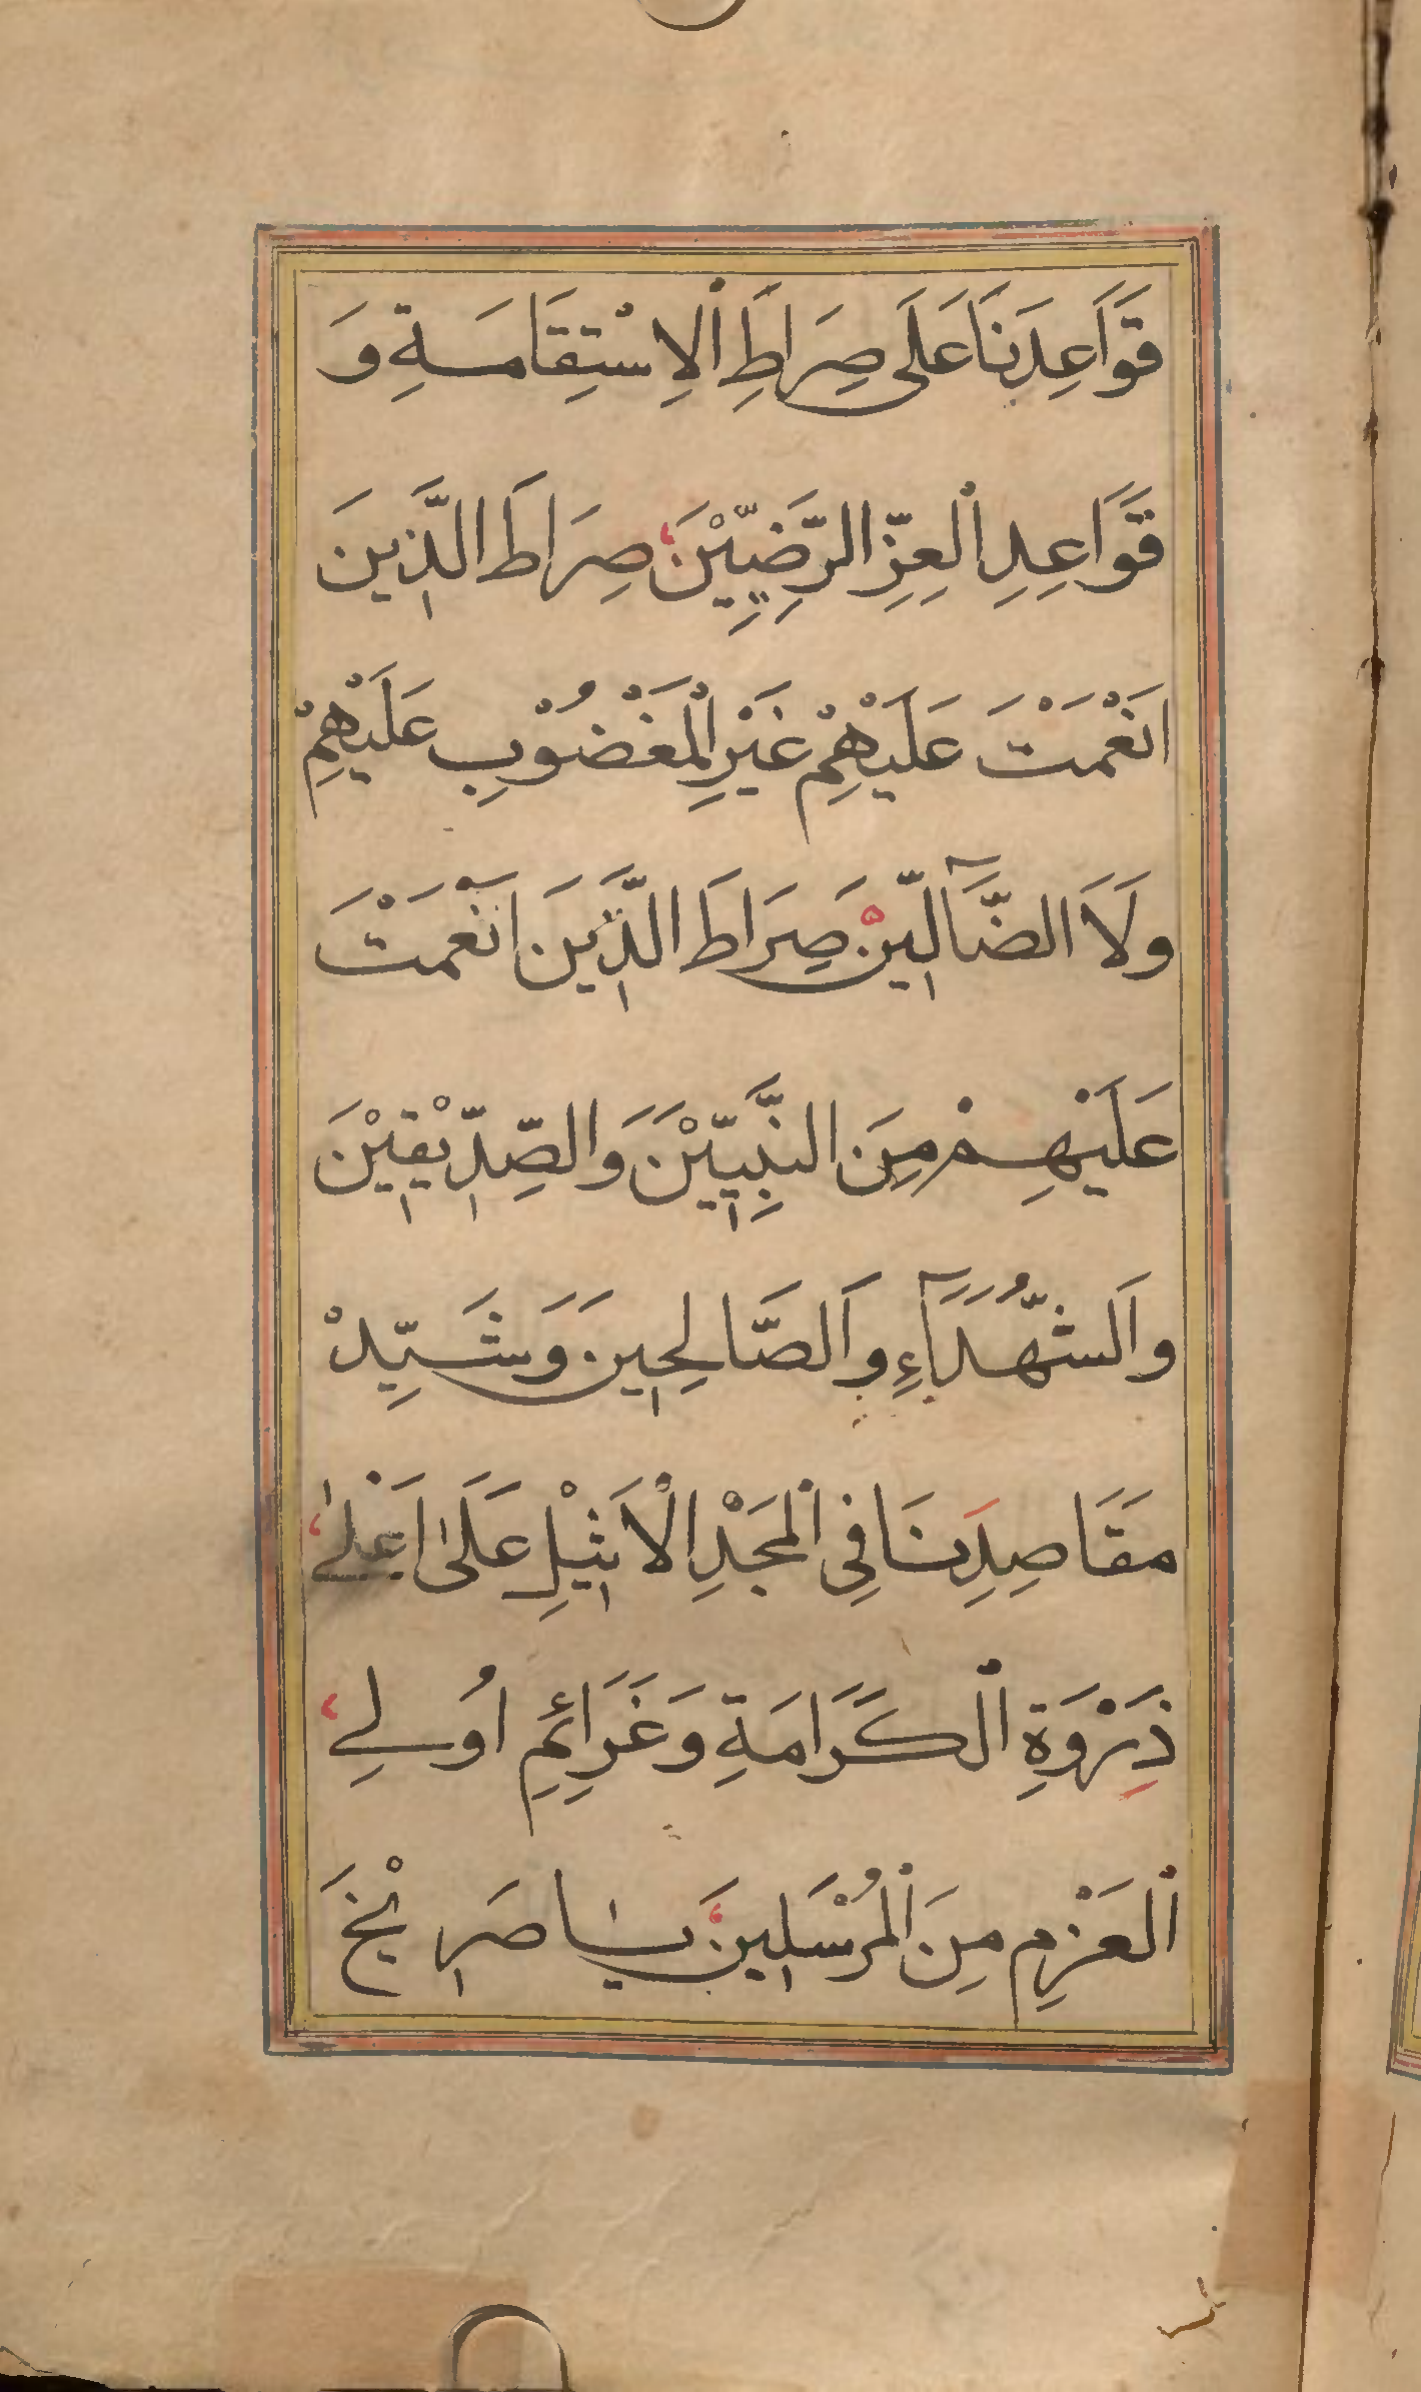 قَوَاعِدَنَا عَلَى صِرَاطِ الْاِسْتِقَامَةِ وَ
قَوَاعِدِ الْعِزِّ الرَّضِيِّيْنَ صِرَاطَ الَّذِينَ
اَنْعَمْتَ عَلَيْهِمْ غَيْرِ الْمَغْضُوْبِ عَلَيْهِمْ
وَلَا الضَّآلِّينَ صِرَاطَ الَّذِينَ اَنْعَمْتَ
عَلَيْهِمْ مِنَ النَّبِيِّيْنَ وَالصِّدِّيْقِيْنَ
وَالشُّهَدَآءِ وَالصَّالِحِينَ وَشَيِّدْ
مَقَاصِدَنَا فِي الْمَجْدِ الْاَثِيْلِ عَلَىٰ اَعْلىٰ
ذِرْوَةِ الْكَرَامَةِ وَعَزَائِمِ اُولِي
الْعَزْمِ مِنَ الْمُرْسَلِينَ يَا صَرِيْخَ